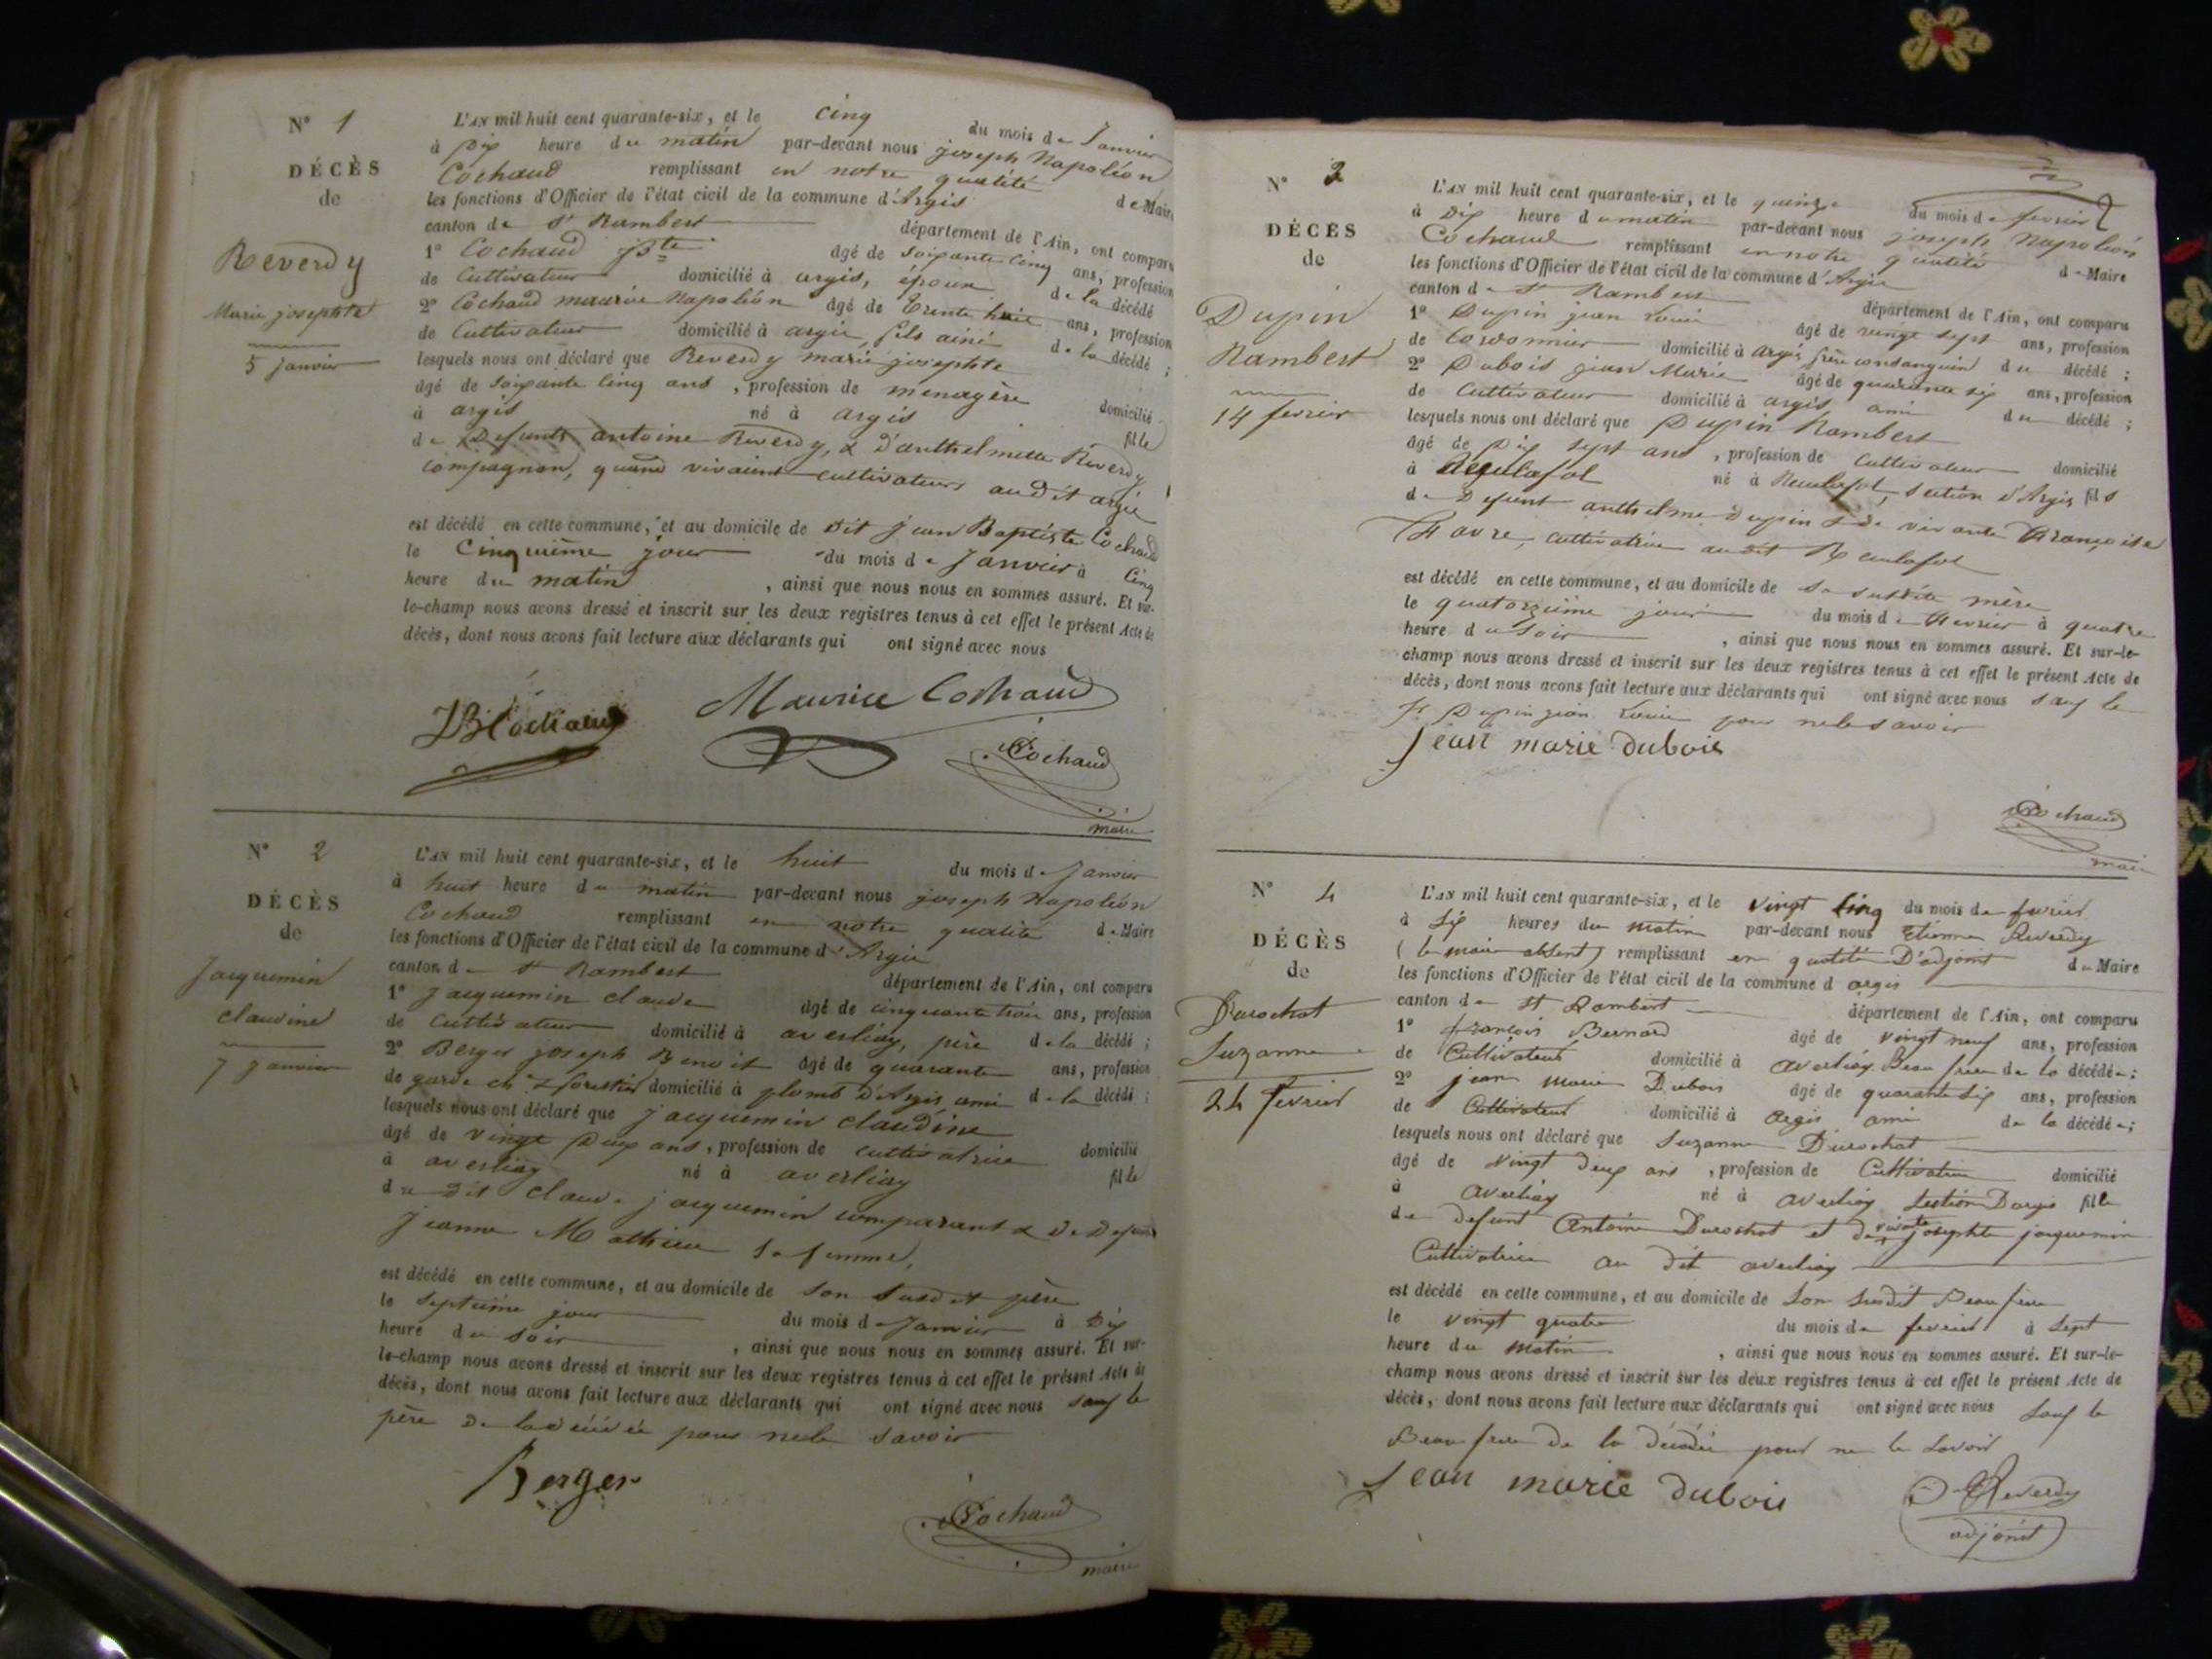 N° 1
DÉCÈS
de
Reverdy
Marie josephte
5 janvier
L'AN mil huit cent quarante-six, et le cinq du mois de Janvier
à Dix heure du matin par-devant nous joseph Napoléon
Cochaud remplissant en notre qualité de Maire
les fonctions d'Officier de l'état civil de la commune d'Argis
canton de St Rambert département de l'Ain, ont comparu
1° Cochaud j Bte âgé de soixante cinq ans, profession
de Cultivateur domicilié à argis, époux de la décédé
2° Cochaud maurice Napoléon âgé de Trente huit ans, profession
de Cultivateur domicilié à argis, fils ainé de la décédé ;
lesquels nous ont déclaré que Reverdy marie josephte
âgé de soixante cinq ans, profession de menagère domicilié
à argis né à argis fille
de Defunts antoine Reverdy, & d'anthelmette Reverdy
compagnon, quand vivaient cultivateurs audit argis
est décédé en cette commune, et au domicile de dit jean Baptiste Cochaud
le Cinquième jour du mois de Janvier à Cinq
heure du matin, ainsi que nous nous en sommes assuré. Et sur-
le-champ nous avons dressé et inscrit sur les deux registres tenus à cet effet le présent Acte de
décès, dont nous avons fait lecture aux déclarants qui ont signé avec nous
JB Cochaud Maurice Cochaud
Cochaud
maire
N° 2
DÉCÈS
de
Jacquemin
claudine
7 janvier
L'AN mil huit cent quarante-six, et le huit du mois de Janvier
à huit heure du matin par-devant nous joseph Napoléon
Cochaud remplissant en notre qualité de Maire
les fonctions d'Officier de l'état civil de la commune d'Argis
canton de St Rambert département de l'Ain, ont comparu
1° Jacquemin claude âgé de cinquante trois ans, profession
de Cultivateur domicilié à averliay, père de la décédé ;
2° Berger joseph Benoit âgé de quarante ans, profession
de garde ch. & forestier domicilié à plomb d'Argis ami de la décédé ;
lesquels nous ont déclaré que jacquemin claudine
âgé de vingt Deux ans, profession de cultivatrice domicilié
à averliay né à averliay fille
du dit claude jacquemin comparant & de Defunte
Jeanne Mathieu sa femme,
est décédé en cette commune, et au domicile de son susdit père
le septième jour du mois de Janvier à Dix
heure du soir, ainsi que nous nous en sommes assuré. Et sur-
le-champ nous avons dressé et inscrit sur les deux registres tenus à cet effet le présent Acte de
décès, dont nous avons fait lecture aux déclarants qui ont signé avec nous sauf le
père de la décédée pour ne le savoir
Berger
Cochaud
maire
N° 3
DÉCÈS
de
Dupin
Rambert
14 fevrier
L'AN mil huit cent quarante-six, et le quinze du mois de fevrier
à Dix heure du matin par-devant nous joseph Napoléon
Cochaud remplissant en notre qualité de Maire
les fonctions d'Officier de l'état civil de la commune d'Argis
canton de St Rambert département de l'Ain, ont comparu
1° Dupin jean Louis âgé de vingt sept ans, profession
de Cordonnier domicilié à Argis frère consanguin du décédé ;
2° Dubois jean Marie âgé de quarante six ans, profession
de Cultivateur domicilié à argis ami du décédé ;
lesquels nous ont déclaré que Dupin Rambert
âgé de Dix sept ans, profession de Cultivateur domicilié
à Reculafol né à Reculafol, section d'Argis fils
de Defunt anthelme Dupin & de vivante françoise
Favre, cultivatrice audit Reculafol
est décédé en cette commune, et au domicile de sa susdite mère
le quatorzième jour du mois de fevrier à quatre
heure du soir, ainsi que nous nous en sommes assuré. Et sur-le-
champ nous avons dressé et inscrit sur les deux registres tenus à cet effet le présent Acte de
décès, dont nous avons fait lecture aux déclarants qui ont signé avec nous sauf le
Dupin jean Louis pour ne le savoir
jean marie dubois
Cochaud
maire
N° 4
DÉCÈS
de
Durochat
Suzanne
24 fevrier
L'AN mil huit cent quarante-six, et le vingt cinq du mois de fevrier
à dix heures du matin par-devant nous Etienne Reverdy
(le maire absent) remplissant en qualité D'adjoint du Maire
les fonctions d'Officier de l'état civil de la commune d argis
canton de St Rambert département de l'Ain, ont comparu
1° françois Bernard âgé de vingt neuf ans, profession
de Cultivateur domicilié à averliay Beau frere de la décédée ;
2° jean marie Dubois âgé de quarante six ans, profession
de Cultivateur domicilié à argis ami de la décédée ;
lesquels nous ont déclaré que Suzanne Durochat
âgé de vingt deux ans, profession de Cultivatrice domicilié
à averliay né à averliay section Dargis fille
de defunt Antoine Durochat et de vivante josephte jacquemin
Cultivatrice au dit averliay
est décédé en cette commune, et au domicile de son susdit Beau frere
le vingt quatre du mois de fevrier à sept
heure du matin, ainsi que nous nous en sommes assuré. Et sur-le-
champ nous avons dressé et inscrit sur les deux registres tenus à cet effet le présent Acte de
décès, dont nous avons fait lecture aux déclarants qui ont signé avec nous sauf le
Beau frere de la décédée pour ne le savoir
jean marie dubois
E Reverdy
adjoint